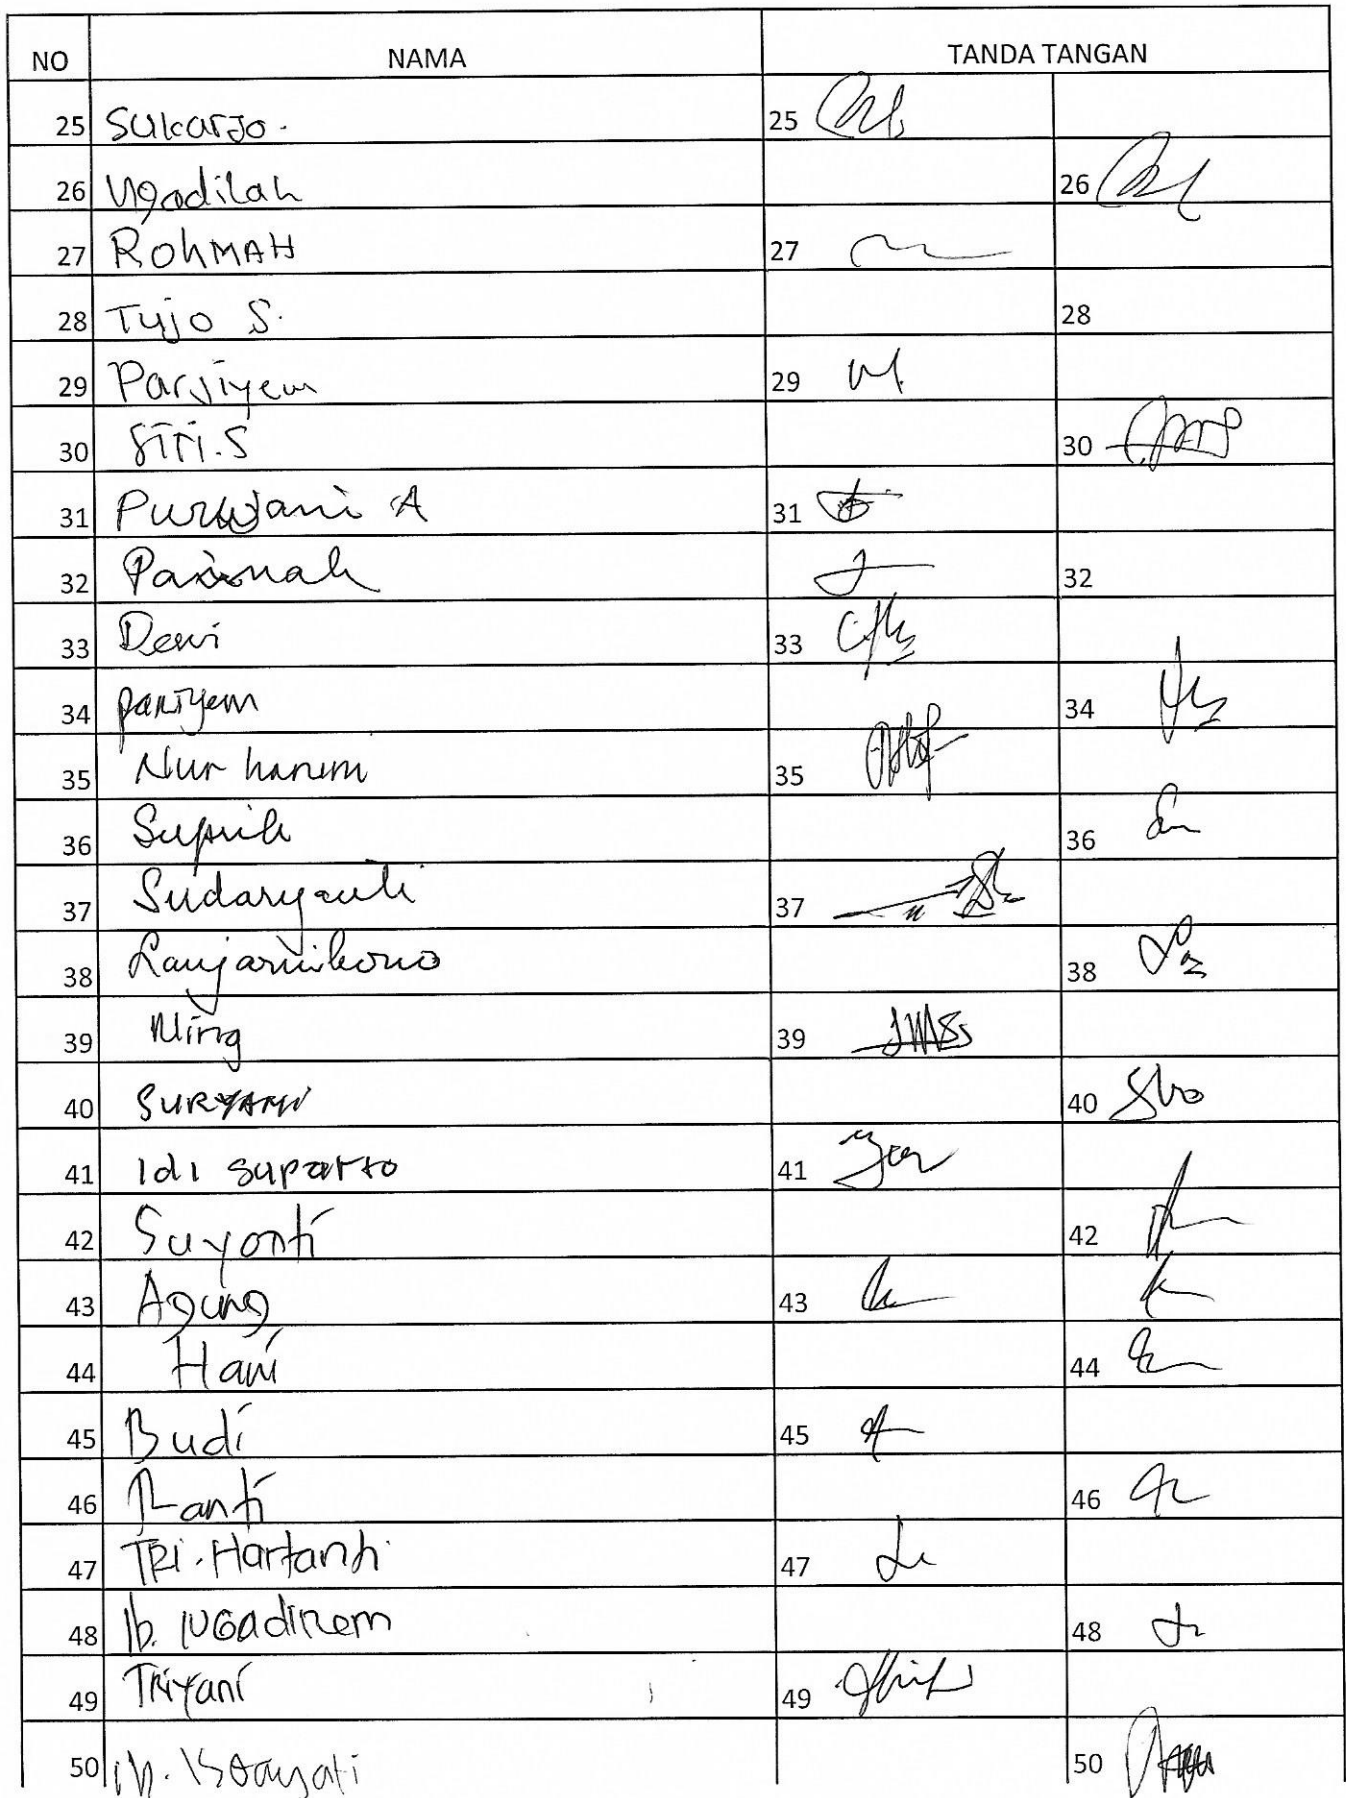 NO NAMA TANDA TANGAN
25 Sukarjo. 25
26 Ngadilah 26
27 ROhMAH 27
28 Tujo S. 28
29 Parjiyem 29
30 SiTi.S 30
31 Purwani A 31
32 Painah 32
33 Dewi 33
34 pariyem 34
35 Nur hanem 35
36 36
37 Sudaryanti 37
38 38
39 Ning 39
40 SURYANI 40
41 Idi suparto 41
42 Suyanti 42
43 Agung 43
44 Hani 44
45 Budi 45
46 Ranti 46
47 TRi.Hartanti 47
48 Ib. NGadirem 48
49 Triyani 49
50 50